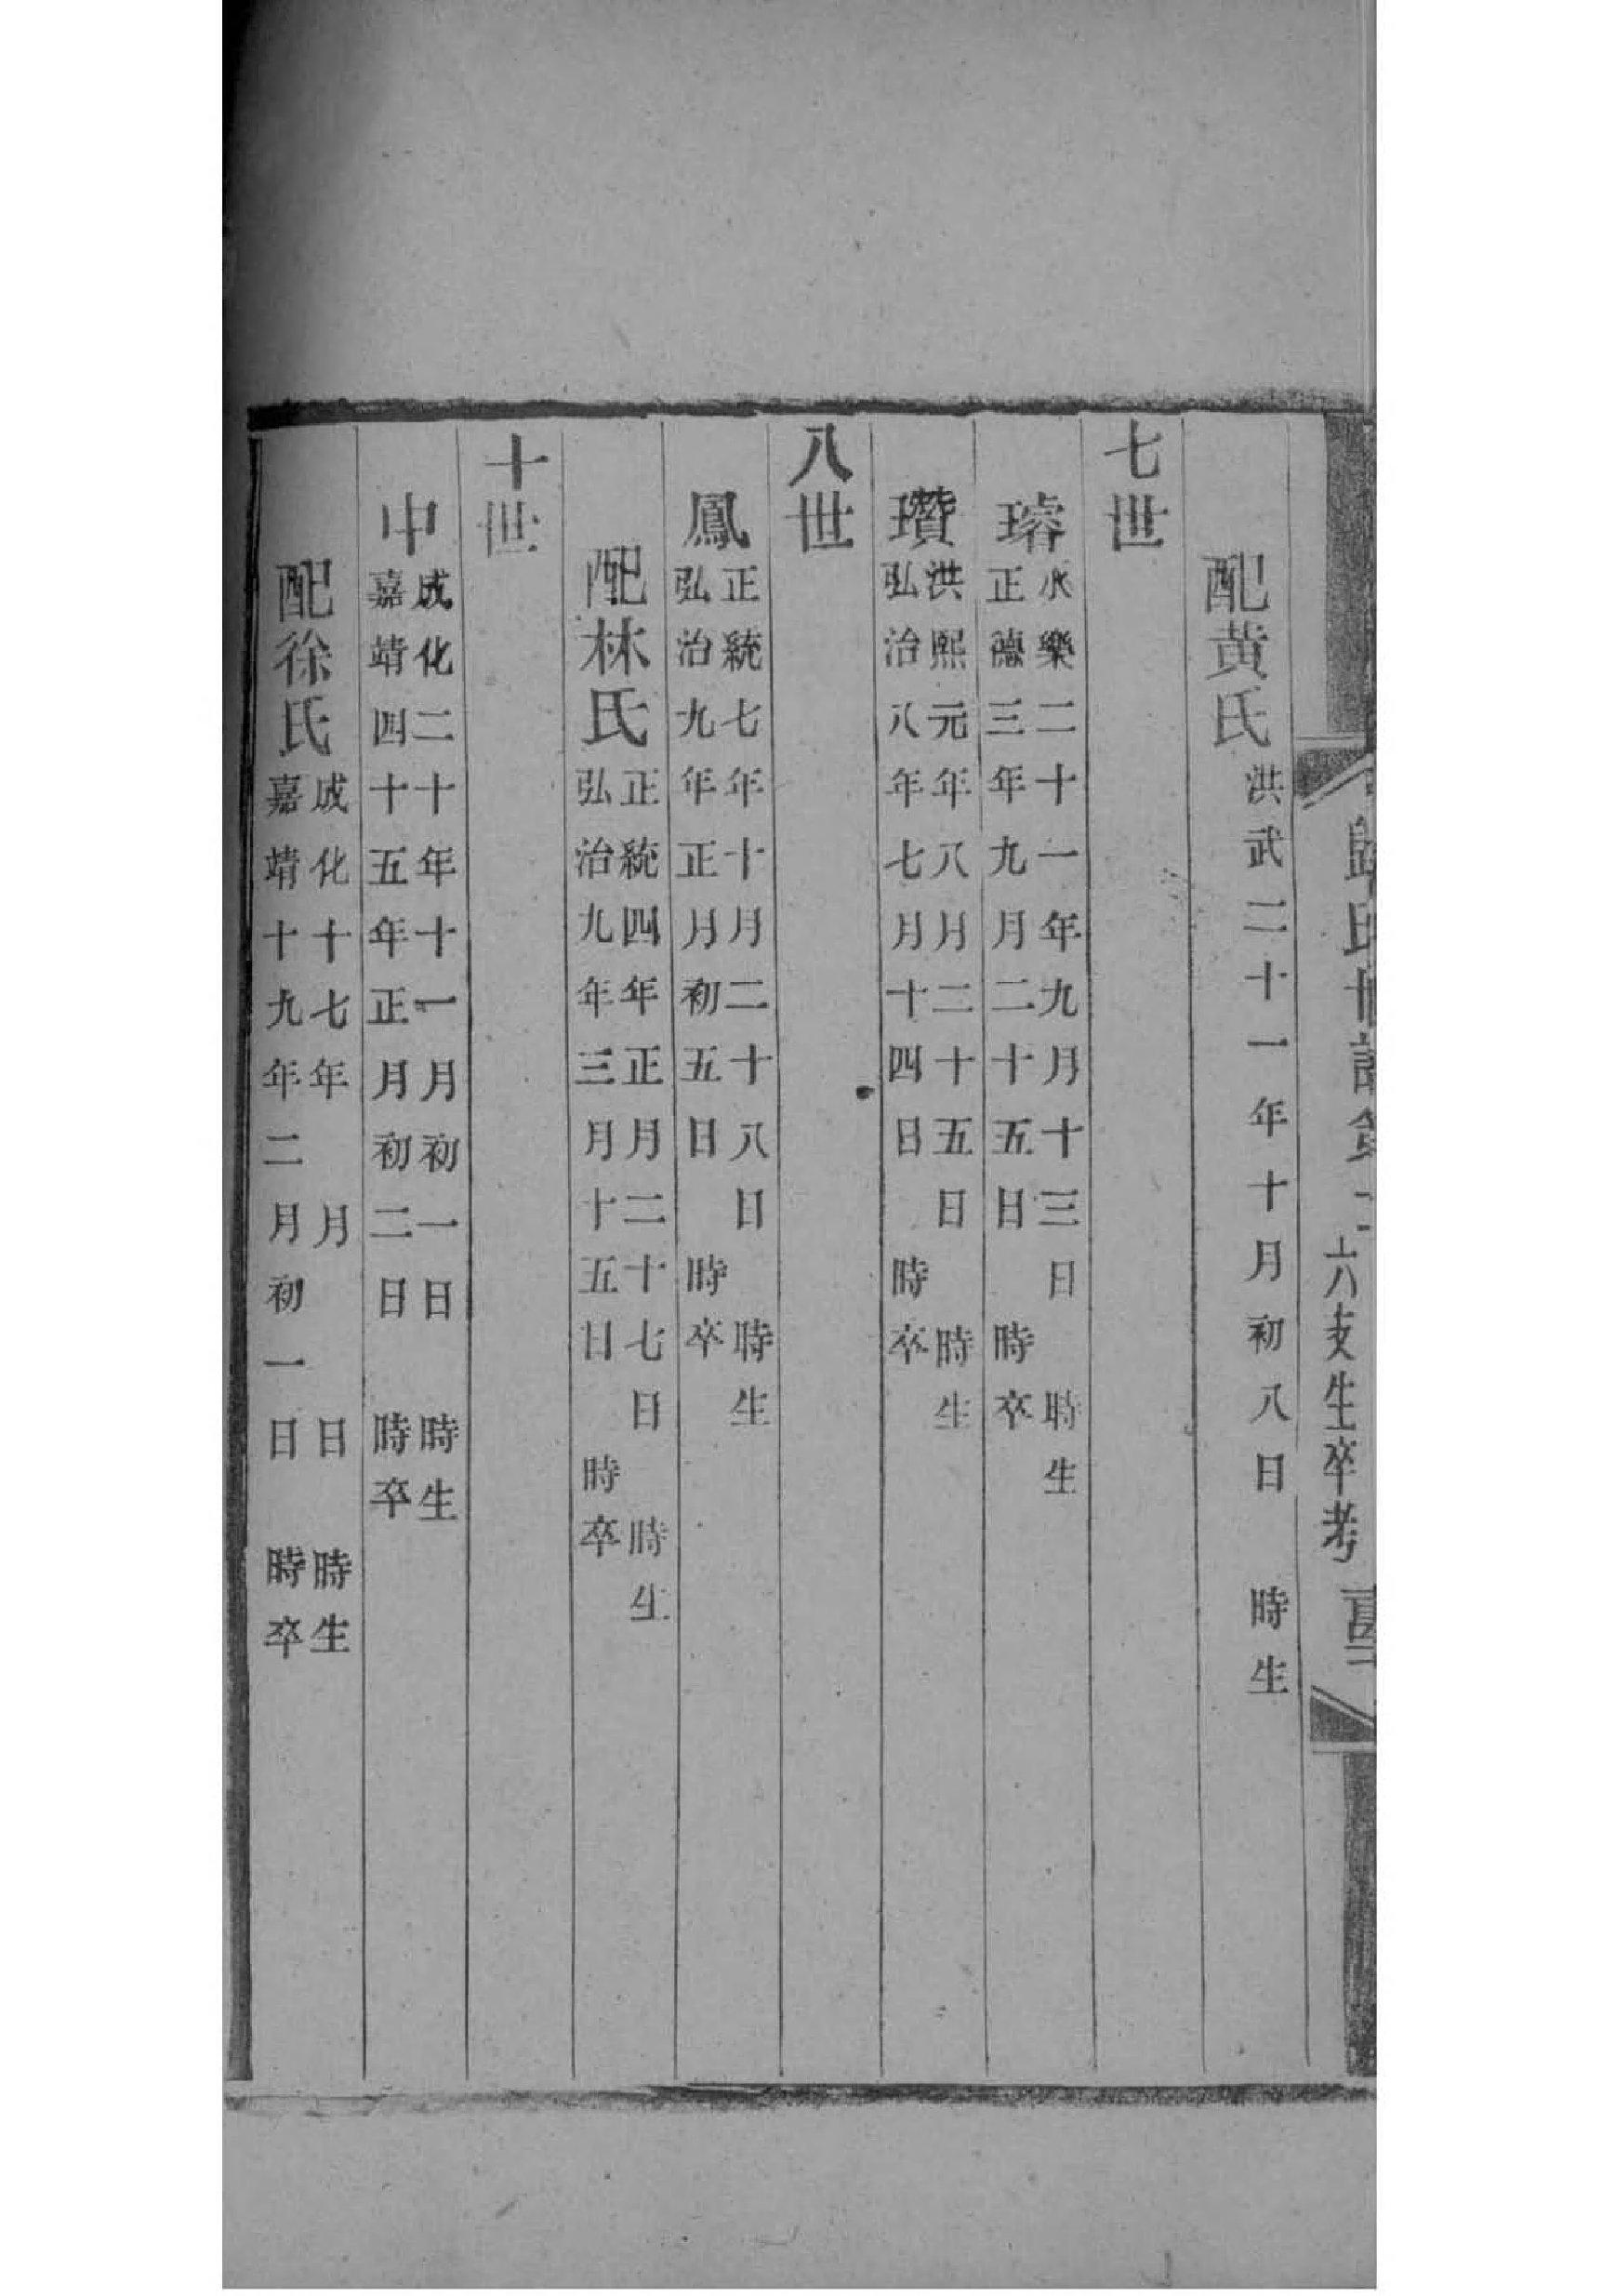 歸氏世譜
六支生卒考
配黄氏
洪武二十一年十月初八日 時生
七世
璿
永樂二十一年九月十三日 時生
正德三年九月二十五日 時卒
瓚
洪熙元年八月二十五日 時生
弘治八年七月十四日 時卒
八世
鳳
正統七年十月二十八日 時生
弘治九年正月初五日 時卒
配林氏
正統四年正月二十七日 時生
弘治九年三月十五日 時卒
十世
中
成化二十年十一月初一日 時生
嘉靖四十五年正月初二日 時卒
配徐氏
成化十七年 月 日 時生
嘉靖十九年二月初一日 時卒